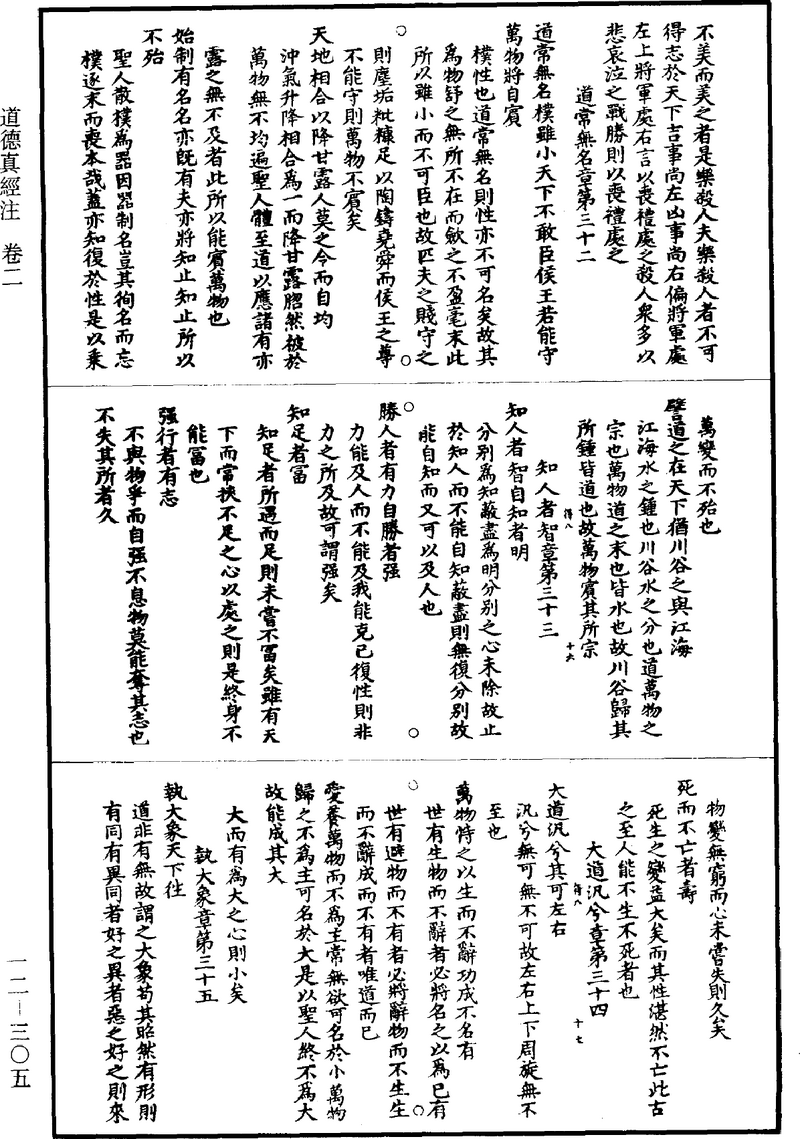 不美而美之者是樂殺人夫樂殺人者不可
得志於天下吉事尚左凶事尚右偏將軍處
左上將軍處右言以喪禮處之殺人衆多以
悲哀泣之戰勝則以喪禮處之
道常無名章第三十二
道常無名樸雖小天下不敢臣侯王若能守
萬物將自賓
樸性也道常無名則性亦不可名矣故其
為物舒之無所不在而斂之不盈毫末此
所以雖小而不可臣也故匹夫之賤守之
則塵垢粃糠足以陶鑄堯舜而侯王之尊
不能守則萬物不賓矣
天地相合以降甘露人莫之令而自均
沖氣升降相合為一而降甘露䐇然被於
萬物無不均遍聖人體至道以應諸有亦
露之無不及者此所以能賓萬物也
始制有名名亦既有夫亦將知止知止所以
不殆
聖人散樸為器因器制名豈其徇名而忘
樸逐末而喪本哉蓋亦知復於性是以乘
萬變而不殆也
譬道之在天下猶川谷之與江海
江海水之鍾也川谷水之分也道萬物之
宗也萬物道之末也皆水也故川谷歸其
所鍾皆道也故萬物賓其所宗
得八 十六
知人者智章第三十三
知人者智自知者明
分別為知蔽盡為明分別之心未除故止
於知人而不能自知蔽盡則無復分別故
能自知而又可以及人也
勝人者有力自勝者强
力能及人而不能及我能克己復性則非
力之所及故可謂强矣
知足者富
知足者所遇而足則未嘗不富矣雖有天
下而常挾不足之心以處之則是終身不
能富也
强行者有志
不與物爭而自强不息物莫能奪其志也
不失其所者久
物變無窮而心未嘗失則久矣
死而不亡者壽
死生之變益大矣而其性湛然不亡此古
之至人能不生不死者也
大道汎兮章第三十四
得八 十七
大道汎兮其可左右
汎兮無可無不可故左右上下周旋無不
至也
萬物恃之以生而不辭功成不名有
世有生物而不辭者必將名之以為己有
世有避物而不有者必將辭物而不生生
而不辭成而不有者唯道而已
愛養萬物而不為主常無欲可名於小萬物
歸之不為主可名於大是以聖人終不為大
故能成其大
大而有為大之心則小矣
執大象章第三十五
執大象天下往
道非有無故謂之大象苟其昭然有形則
有同有異同者好之異者惡之好之則來
道德真經注 卷二
一二—三〇五